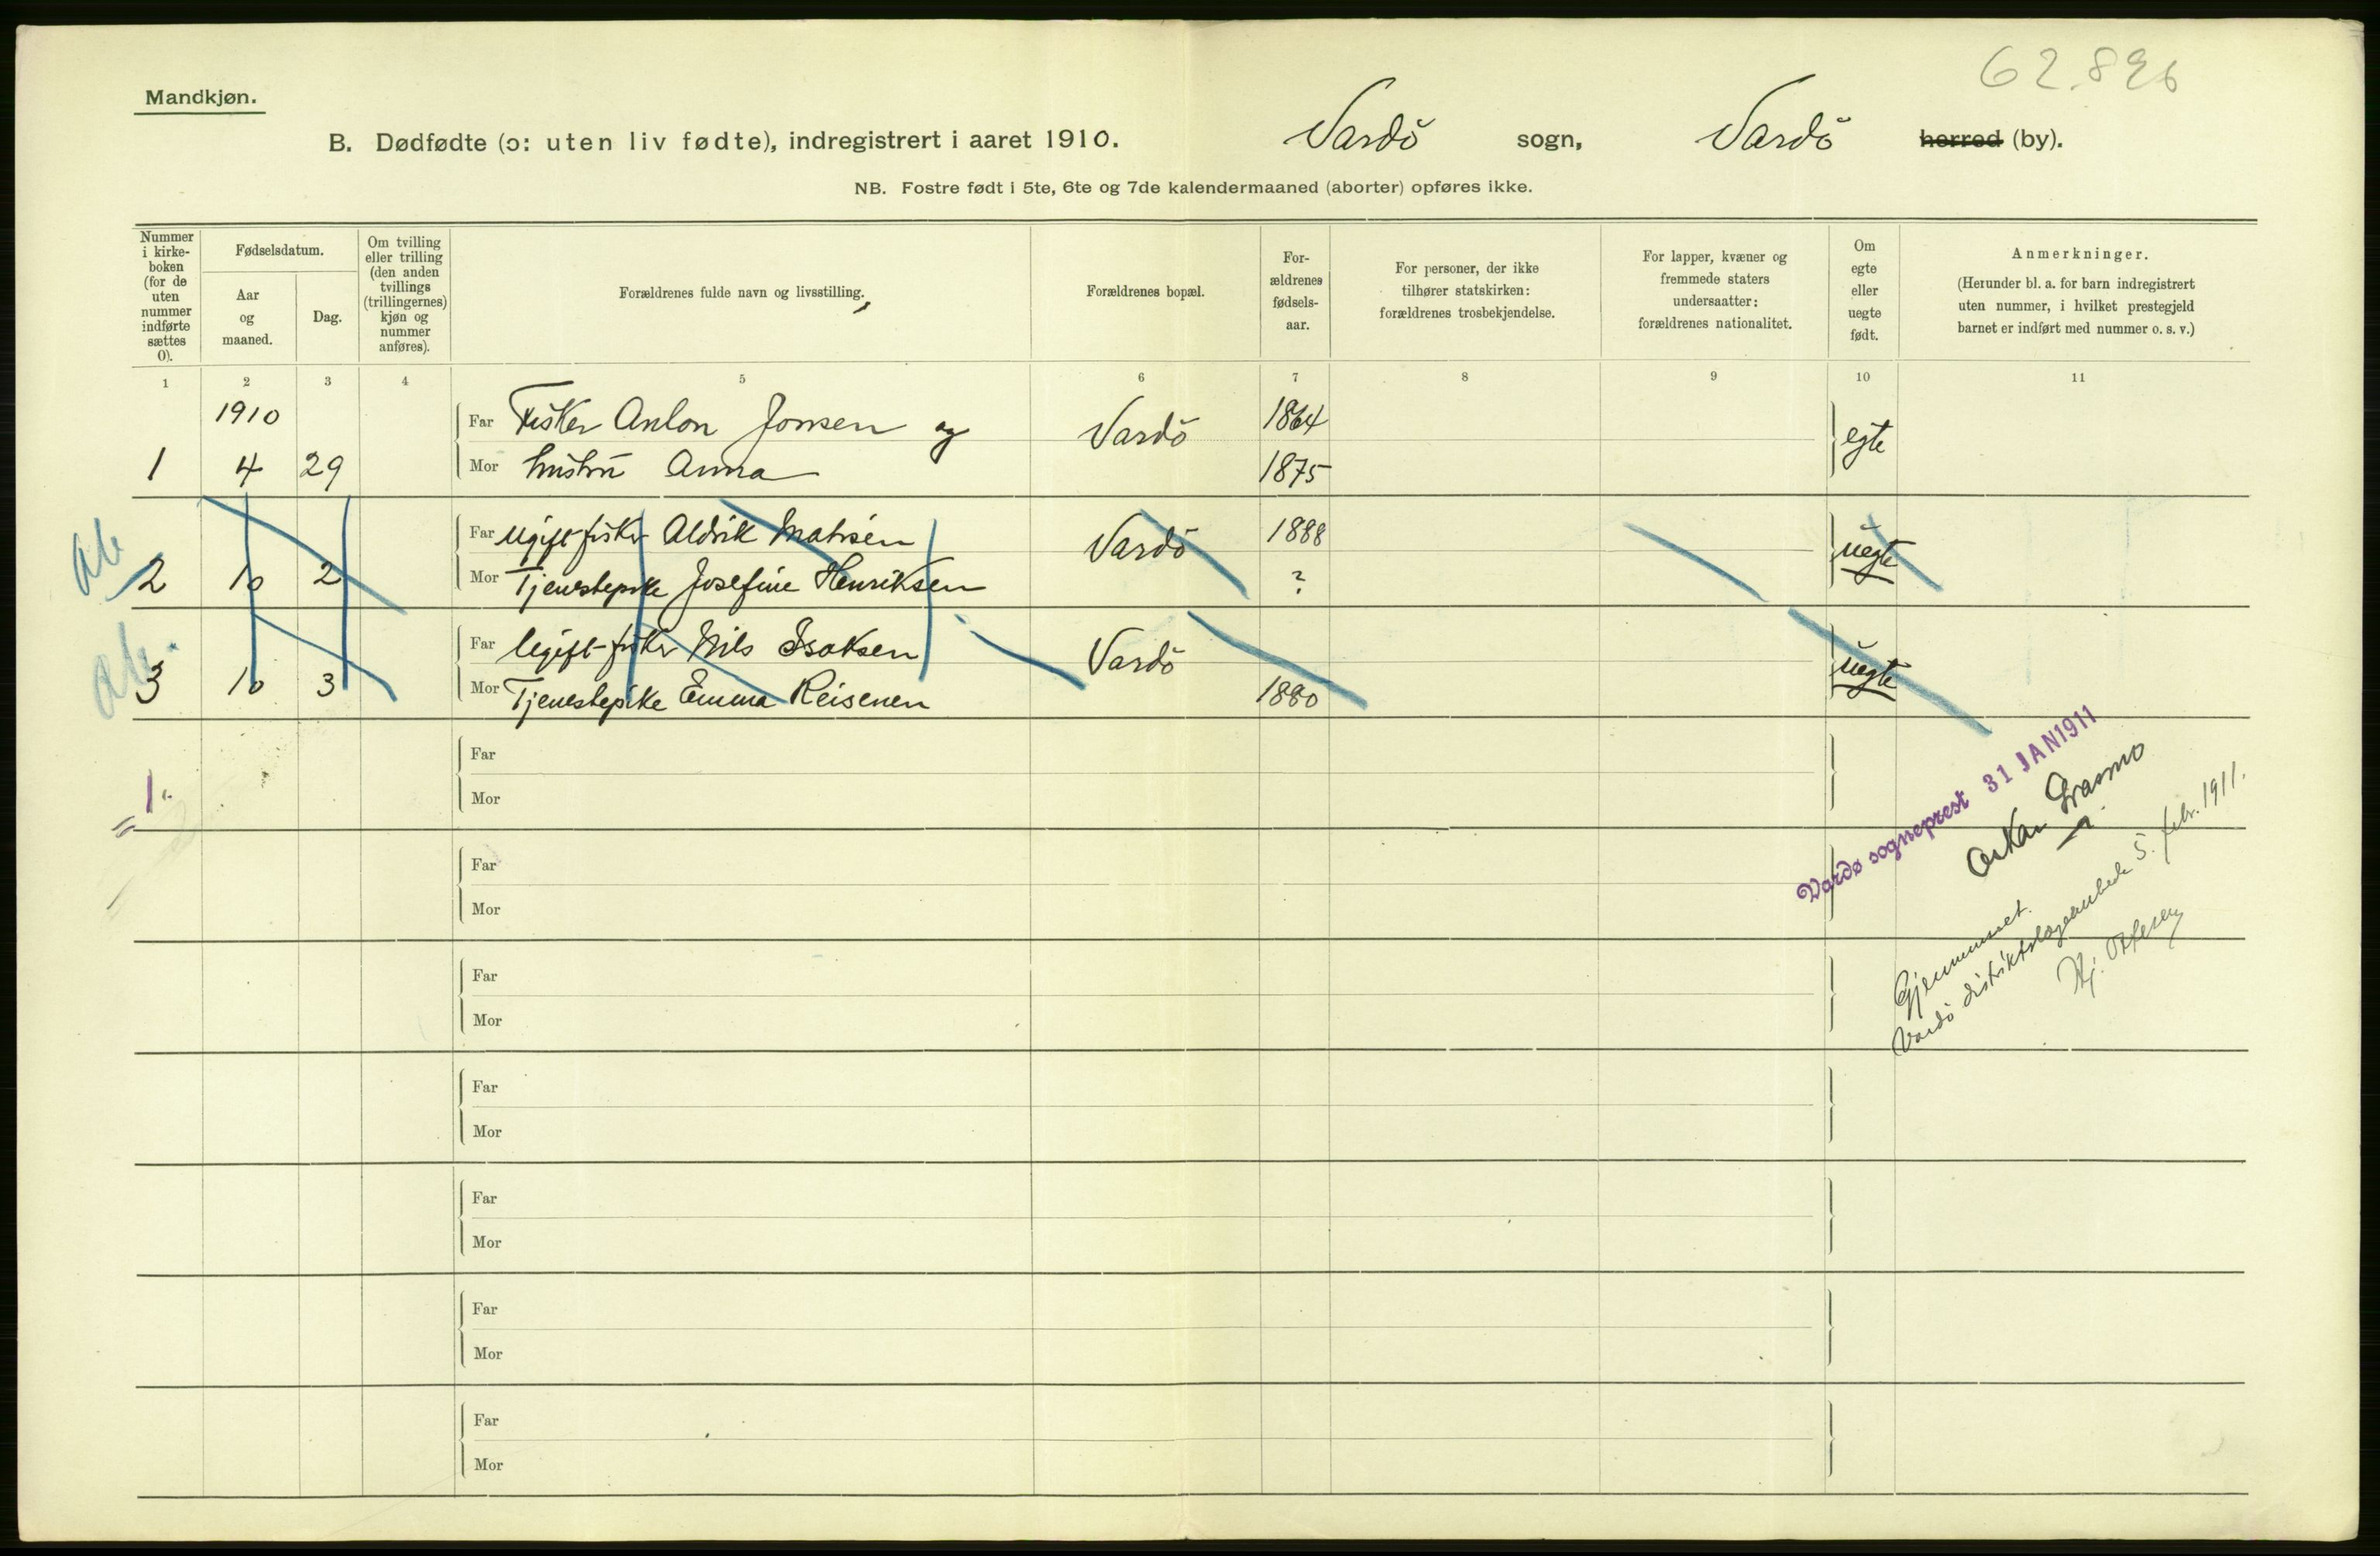 62.896
Mandkjøn.
B. Dødfødte (ɔ: uten liv fødte), indregistrert i aaret 1910. Vardö sogn, Vardö herred (by).
NB. Fostre født i 5te, 6te og 7de kalendermaaned (aborter) opføres ikke.
Nummer i kirke-boken (for de uten nummer indførte sættes 0).
Fødselsdatum.
Aar og maaned.
Dag.
Om tvilling eller trilling (den anden tvillings (trillingernes) kjøn og nummer anføres).
Forældrenes fulde navn og livsstilling.
Forældrenes bopæl.
For-ældrenes fødsels-aar.
For personer, der ikke tilhører statskirken: forældrenes trosbekjendelse.
For lapper, kvæner og fremmede staters undersaatter: forældrenes nationalitet.
Om egte eller uegte født.
Anmerkninger.
(Herunder bl. a. for barn indregistrert uten nummer, i hvilket prestegjeld barnet er indført med nummer o. s. v.)
1 2 3 4 5 6 7 8 9 10 11
1910 Far Fisker Anton Jonsen og Vardö 1864 egte
1 4 29 Mor hustru Anna 1875
ab
Far Ugift fisker Aldrik Mathisen Vardö 1888 uegte
2 10 2 Mor Tjenestepike Josefine Henriksen ?
ab.
Far Ugift fisker Nils Isaksen Vardö uegte
3 10 3 Mor Tjenestepike Emma Reisenen 1880
Far
1. Mor
Vardø sogneprest 31 JAN 1911
Oskar
Gjennemset.
Vardö distriktslægeembede 5. febr. 1911.
Far
Mor
Far
Mor
Far
Mor
Far
Mor
Far
Mor
Far
Mor